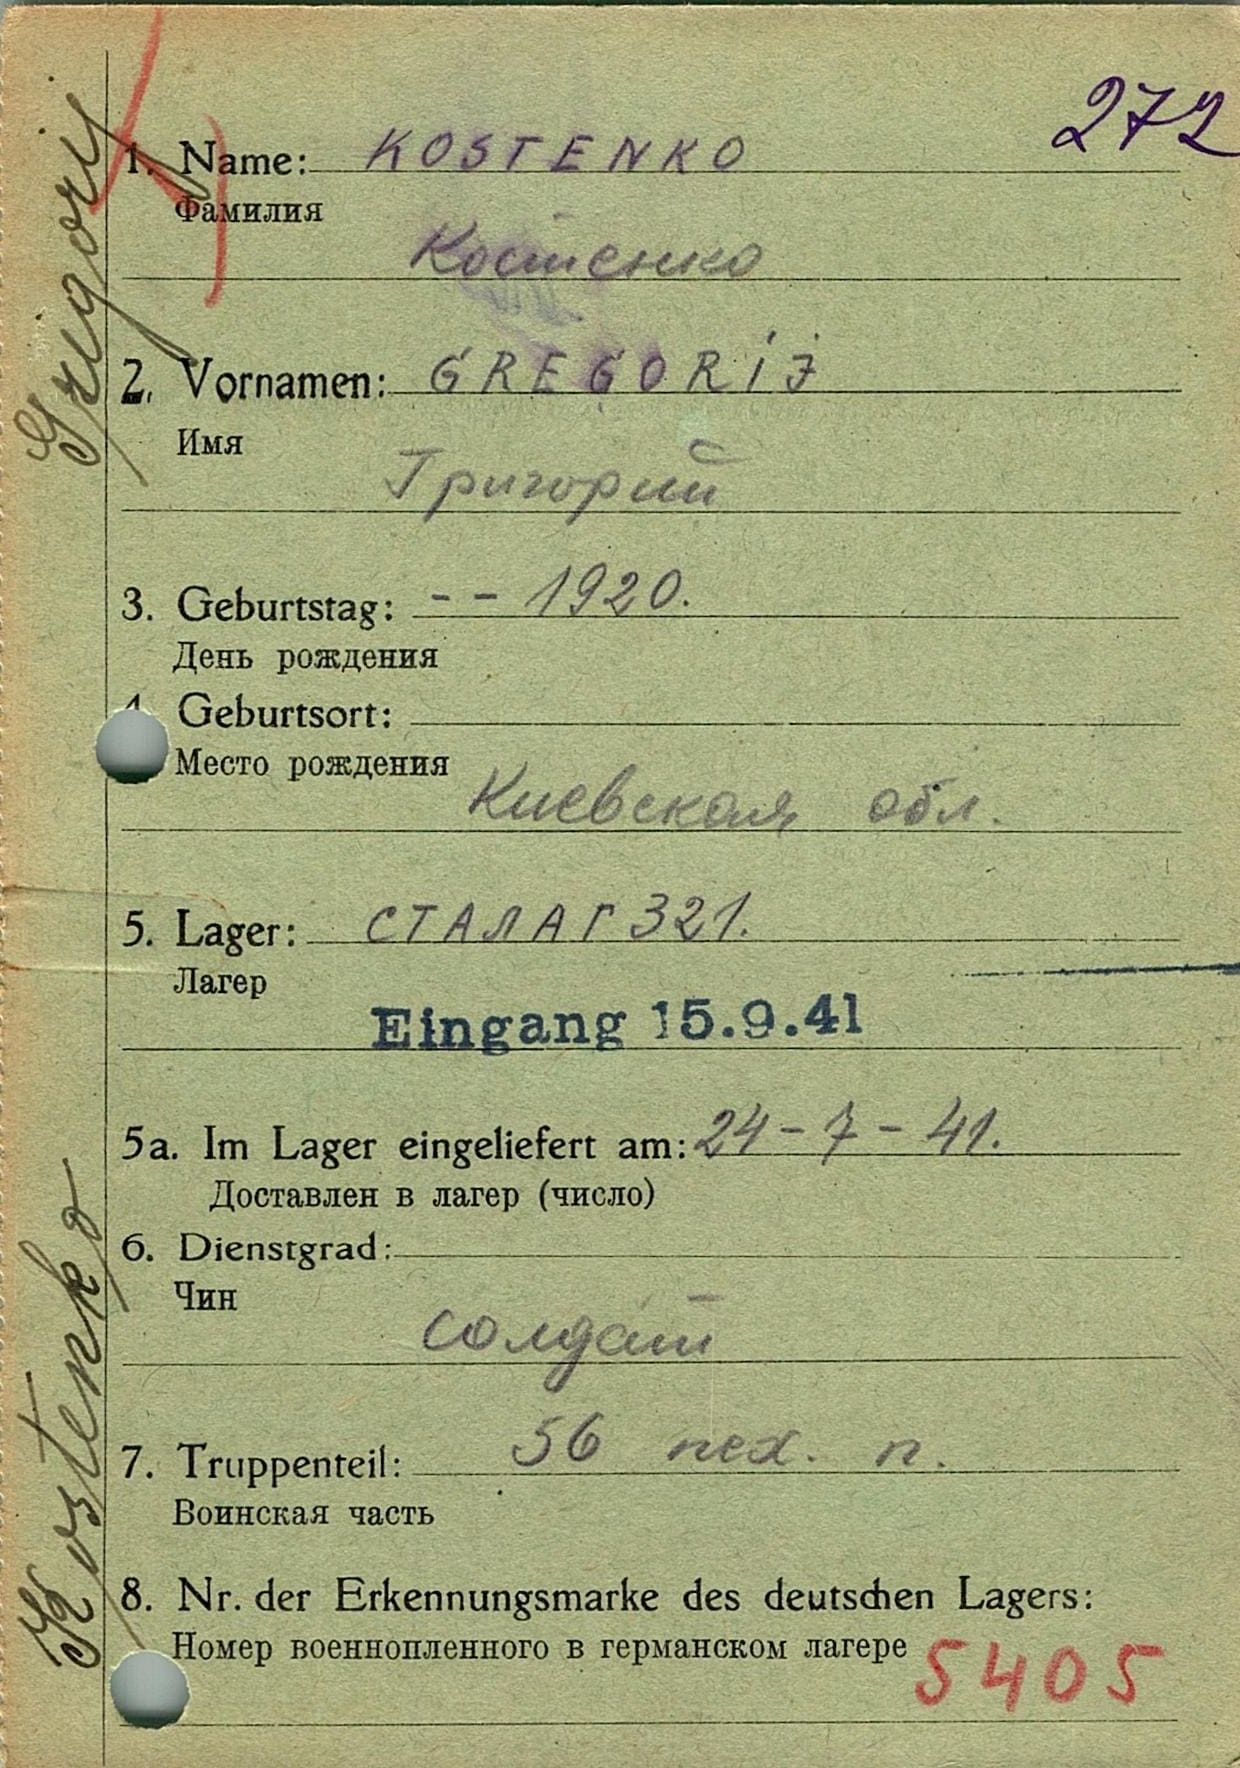 272
1. Name: KOSTENKO
Фамилия
Костенко
2. Vornamen: GREGORIJ
Имя
Григорий
3. Geburtstag: - - 1920.
День рождения
4. Geburtsort:
Место рождения
Киевская обл.
5. Lager: СТАЛАГ 321.
Лагер
Eingang 15.9.41
5a. Im Lager eingeliefert am: 24-7-41.
Доставлен в лагер (число)
6. Dienstgrad:
Чин
солдат
7. Truppenteil: 56 пех. п.
Воинская часть
8. Nr. der Erkennungsmarke des deutschen Lagers:
Номер военнопленного в германском лагере 5405
Kostenko Grigorij